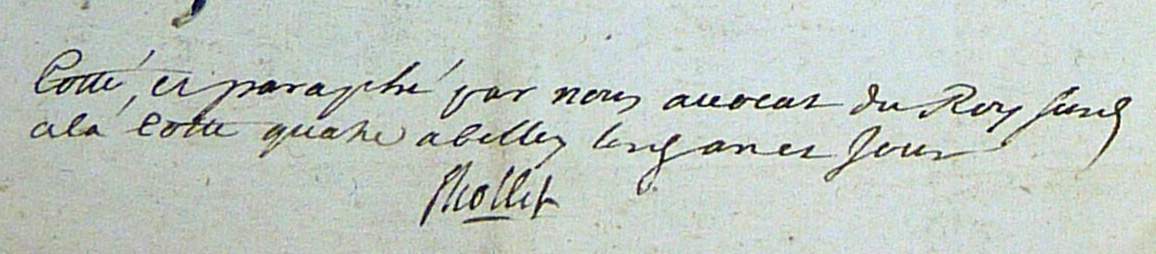 Cotté, et paraphé par nous avocat du Roy susd
a la Cotte quatre a belley lesd an et Jour
Rollet